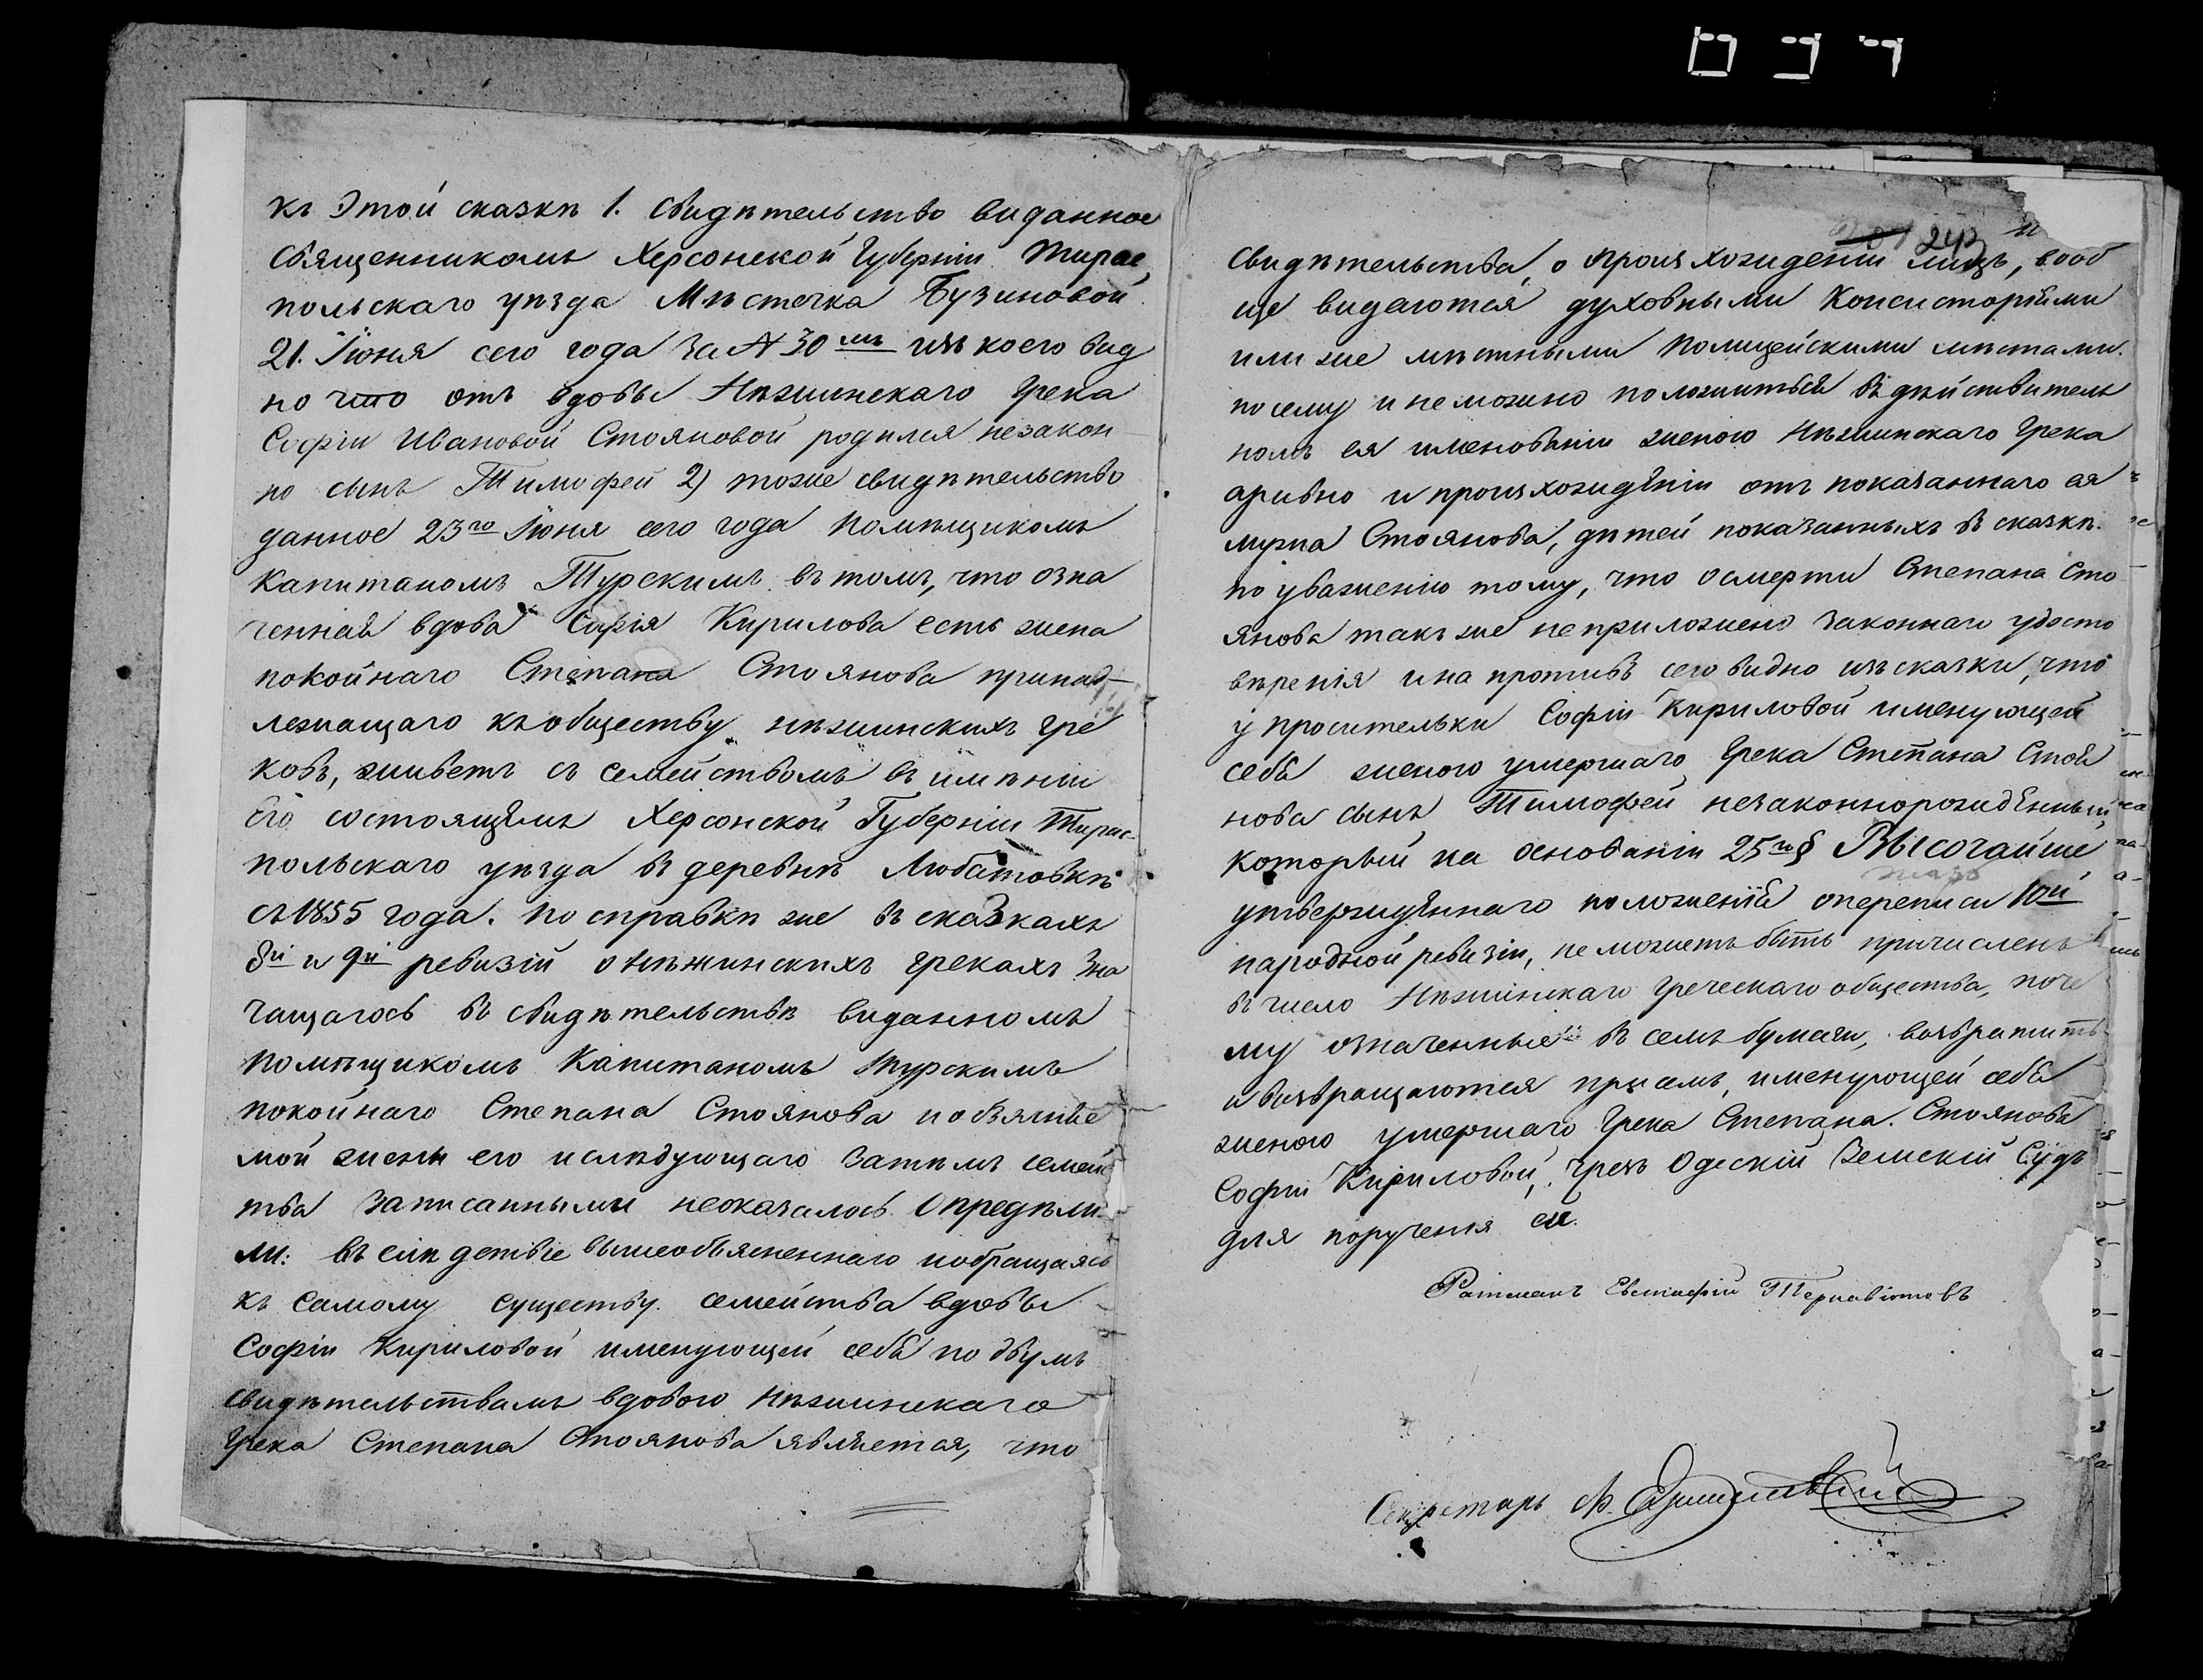 къ Этой сказкѣ 1. Свидѣтельство виданное
Священникомъ Херсонской Губерніи Тирас,
польскаго уѣзда Мѣстечка Бузиновой
21. Іюня сего года за № 30мъ изъ коего вид
но что отъ вдовы Нѣжинскаго Грека
Софіи Ивановой Стояновой родился незакон-
но сынъ Тимофей 2) тоже свидѣтельство
данное 23го Іюня сего года помѣщикомъ
Капитаномъ Турскимъ въ томъ, что озна
ченная вдова Софія Кирилова есть жена
покойнаго Степана Стоянова принад-
лежащаго къ обществу нѣжинскихъ гре
ковъ, живетъ съ семействомъ въ имѣніи
Его состоящемъ Херсонской Губерніи Тирас-
польскаго уѣзда въ деревнѣ Любатовкѣ
съ 1855 года. По справкѣ же въ сказкахъ
8й и 9й ревизій о нѣжинскихъ грекахъ зна
чащагось въ свидѣтельствѣ виданномъ
помѣщикомъ Капитаномъ Турскимъ
покойнаго Степана Стоянова и объявляе
мой жены его и слѣдующаго затѣмъ семей
тва записанными неоказалось. Опредѣли
ли: въ слѣдствіе вышеобъясненнаго и обращаясь
къ самому существу семейства вдовы
Софіи Кириловой именующей себя по двумъ
свидѣтельствамъ вдовою Нѣжинскаго
Грека Степана Стоянова является, что
243
свидѣтельства, о происхожденіи лицъ, вооб
ще видаются духовными Консисторіями
или же мѣстными полицейскими мѣстами.
посему и не можно положиться въ дѣйствитель
номъ ея именованіи женою Нѣжинскаго Грека
аривно и происхожденіи отъ показаннаго ея
мужа Стоянова, дѣтей показанныхъ въ сказкѣ.
по уваженію тому, что о смерти Степана Сто
янова также неприложено законнаго удосто
вѣренія и на противъ сего видно изъ сказки, что
у просительки Софіи Кириловой именующей
себя женою умершаго Грека Степана Стоя
нова сынъ Тимофей незаконнорожденный,
который на основаніи 25го § Высочайше
утвержденнаго положенія о переписи 10й
народной ревизіи, не можетъ быть причисленъ
въ число Нѣжинскаго Греческаго общества, поче
му означенные въ семъ бумаги, возвратить
и возвращаются при семъ, именующей себя
женою умершаго Грека Степана Стоянова
Софіи Кириловой, чрезъ Одескій Земскій Судъ
для поручения ей.
Ратманъ
Секретарь